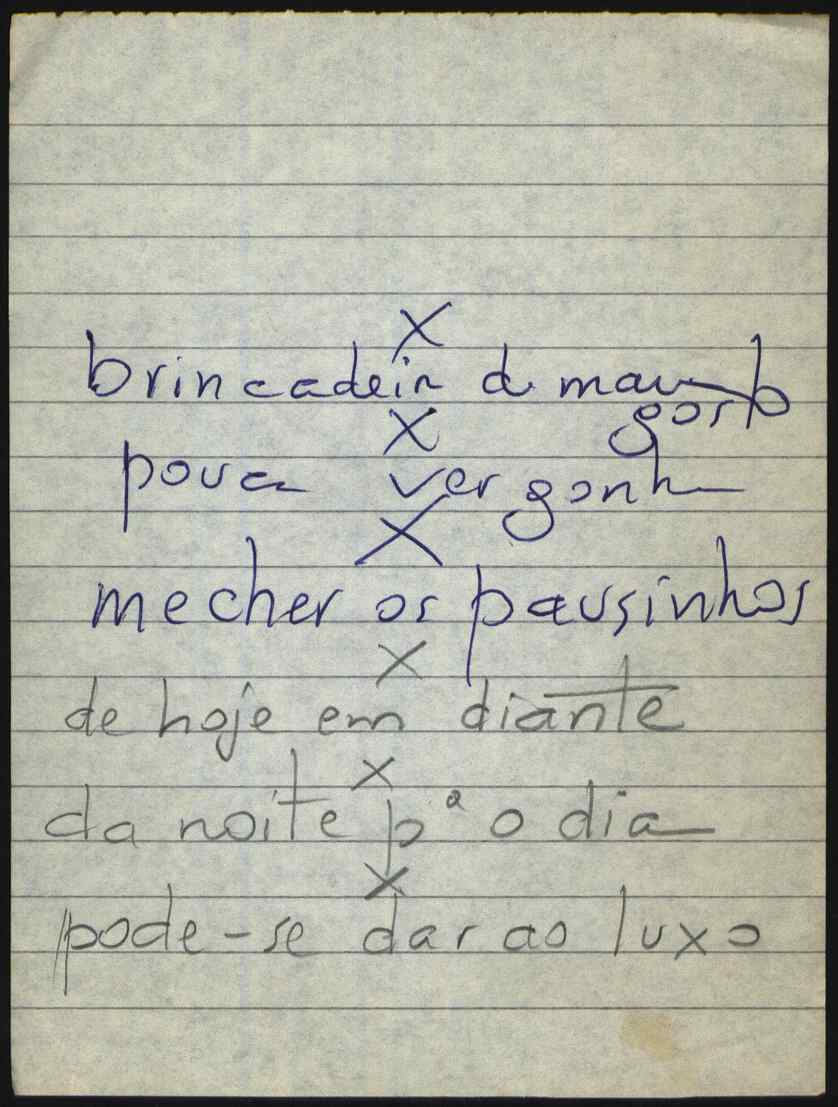 X
brincadeira de mau gosto
X
pouca vergonha
X
mecher os pausinhos
X
de hoje em diante
X
da noite pª o dia
X
pode-se dar ao luxo